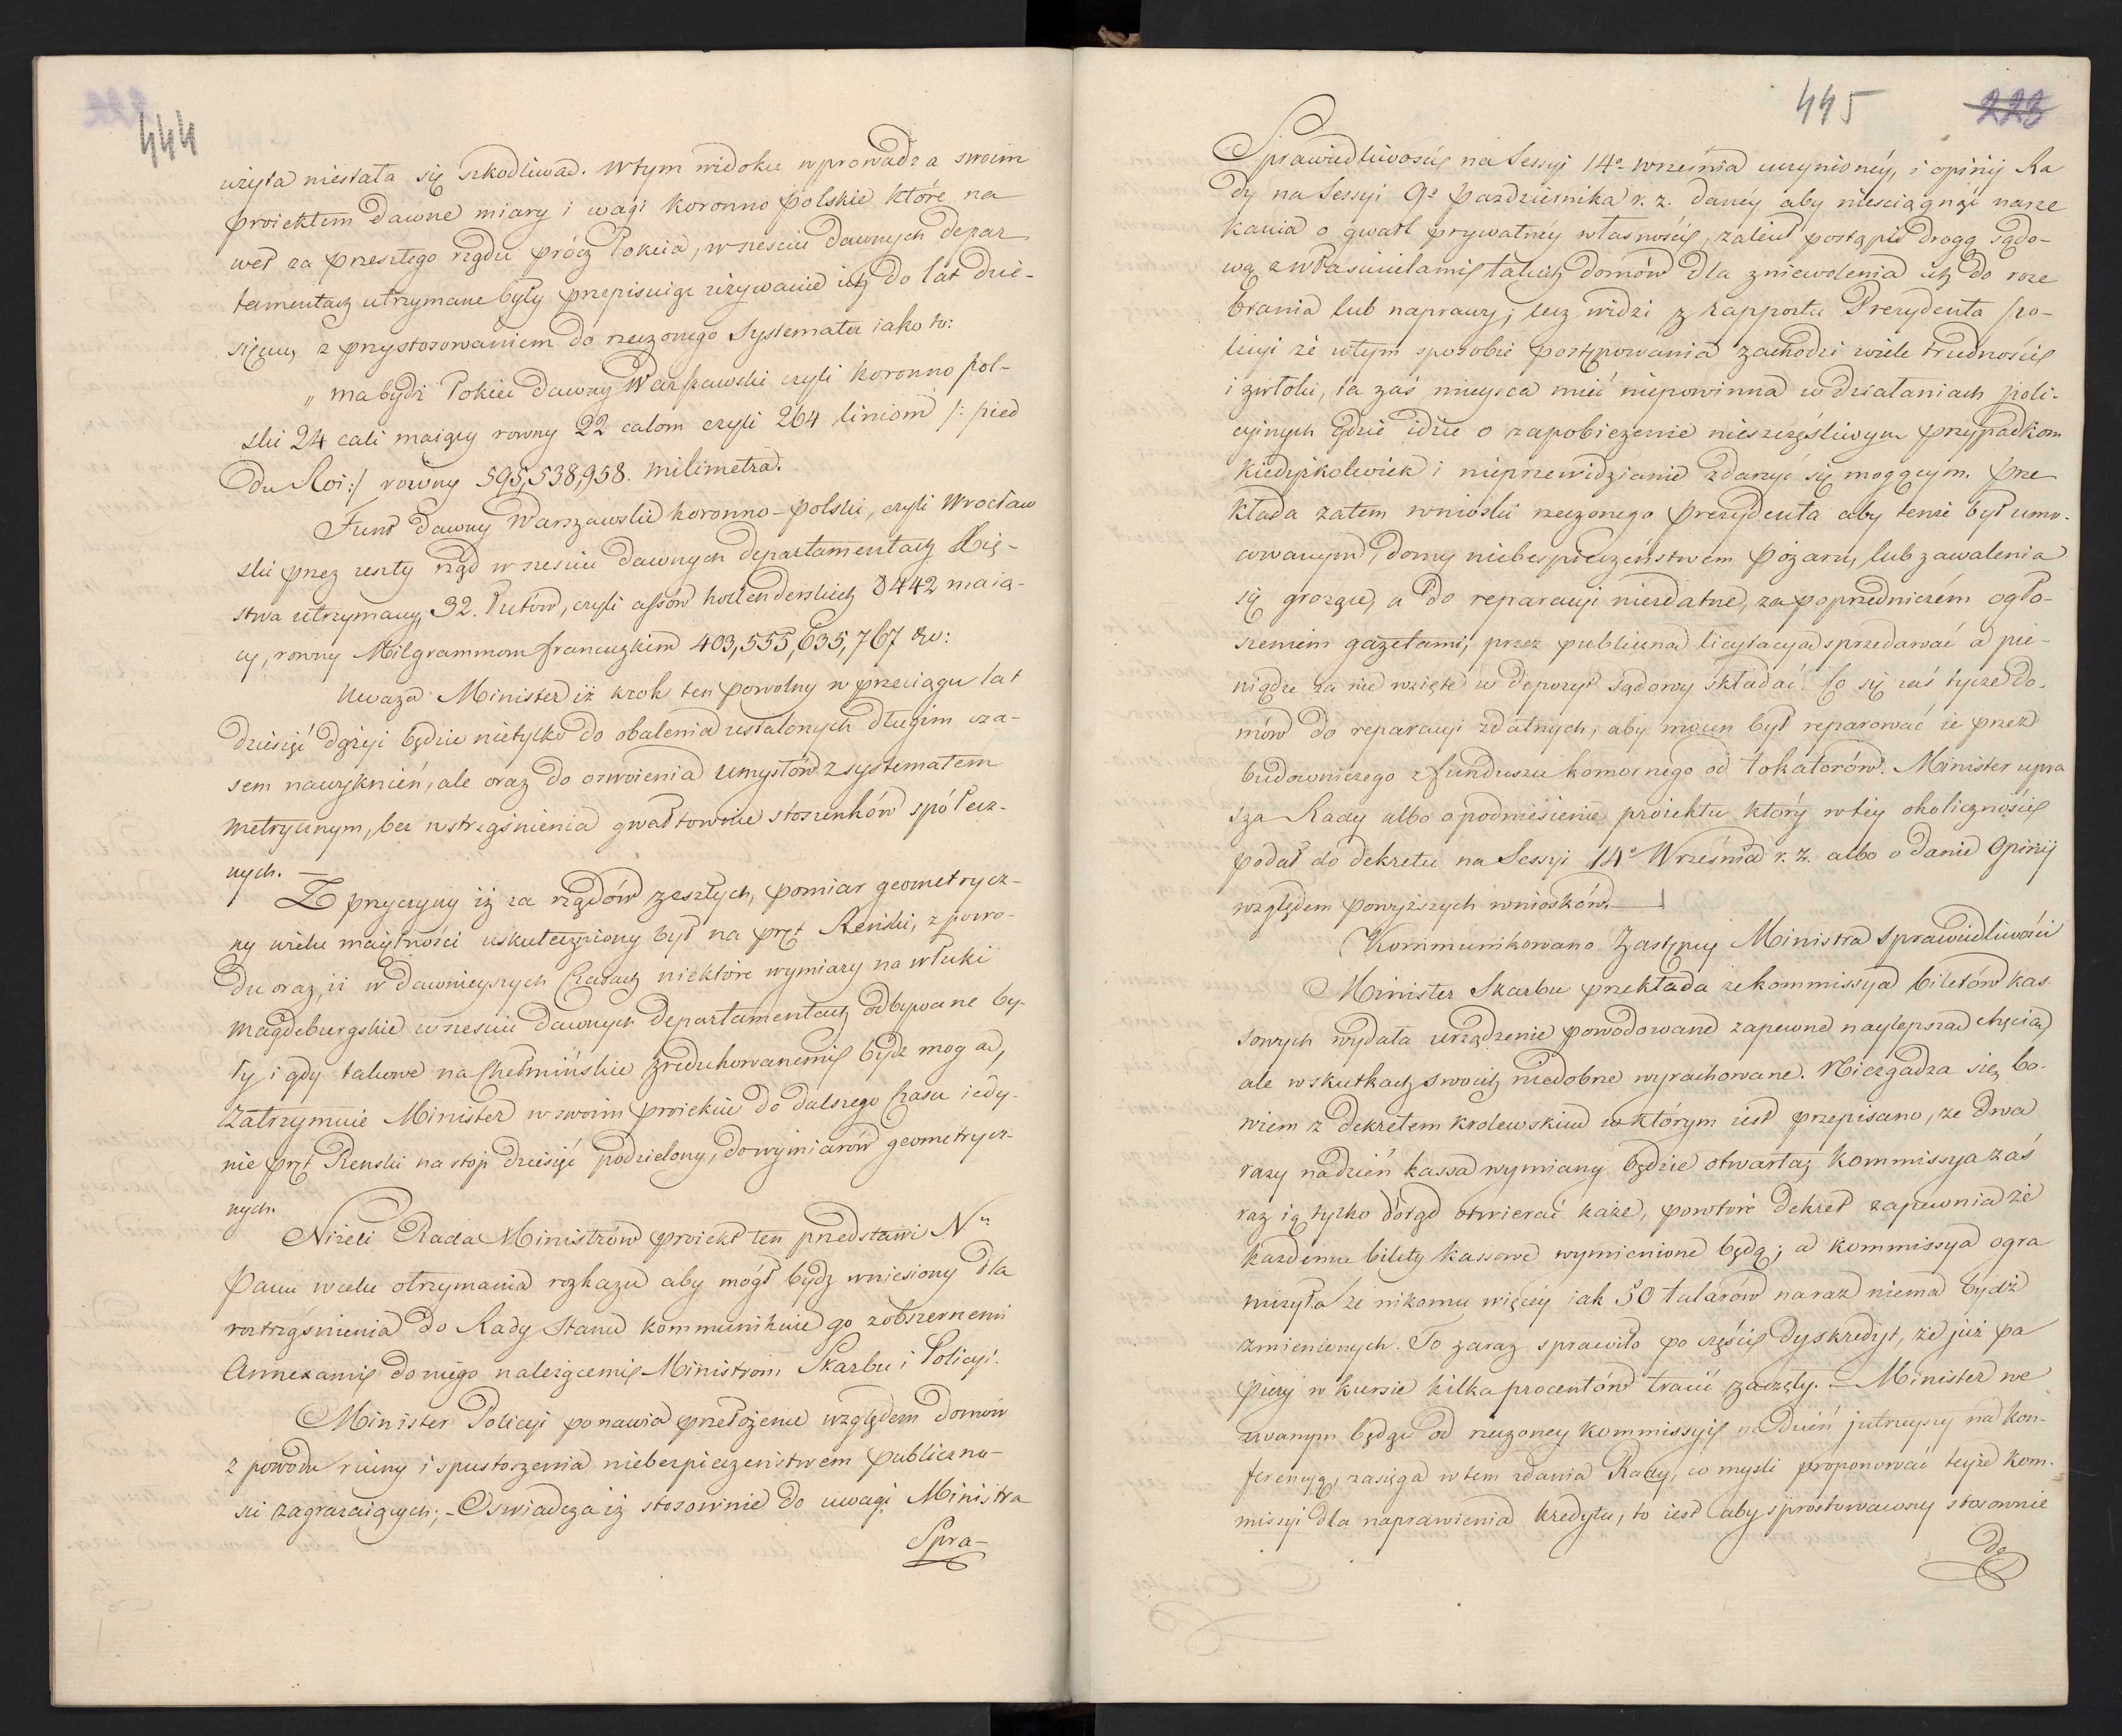 444
użyta niestała się szkodliwa. W tym widoku wprowadza swoim
proiektem dawne miary i wagi koronno polskie które na
wet za przeszłego rządu prócz łokcia, w sześciu dawnych depar
tamentach utrzymane były przepisuiąc używanie ich do lat dzie-
sięciu, z przystosowaniem do rzeczonego Systematu iako to:
„ ma bydź łokieć dawny Warszawski czyli koronno pol-
ski 24 cali maiący rowny 22 calom czyli 264 liniom /: pied
du Roi :/ rowny 595,538,958. milimetra.
Funt dawny Warszawski koronno-polski, czyli Wrocław
ski przez zeszły rząd w sześciu dawnych departamentach Xię-
stwa utrzymany, 32. łutów, czyli assów hollenderskich 8442 maią-
cy, rowny Milgrammom francuzkim 403,555,635,767 &c:
Uważa Minister iż krok ten powolny w przeciągu lat
dziesięć dążyć będzie nietylko do obalenia ustalonych długim cza-
sem nawyknień, ale oraz do oswoienia umysłów z systematem
metrycznym, bez wstrząśnienia gwałtownie stosunków społecz-
nych. —
Z przyczyny iż za rządów zeszłych, pomiar geometrycz-
ny wielu maiętności uskuteczniony był na pręt Reński, z powo-
du oraz, iż w dawnieyszych Czasach niektóre wymiary na włuki
magdeburgskie w sześciu dawnych departamentach odbywane by-
ły i gdy takowe na Chełmińskie zredukowanemi bydź mogą,
zatrzymuie Minister w swoim proiekcie do dalszego Czasu iedy-
nie pręt Reński na stóp dziesięć podzielony, do wymiarów geometrycz-
nych.
Niżeli Rada Ministrów proiekt ten przedstawi N.
Panu w celu otrzymania rozkazu aby mógł bydź wniesiony dla
roztrząśnienia do Rady Stanu kommunikuie go z obszernemi
Annexami do niego należącemi Ministrom Skarbu i Policyi.
Minister Policyi ponawia przełożenie względem domów
z powodu ruiny i spustoszenia niebezpieczeństwem publiczno-
ści zagrażaiących; - Oświadcza iż stosownie do uwagi Ministra
Spra-
445
223
Sprawiedliwości na Sessyi 14o września uczynioney, i opinij Ra
dy na Sessyi 9o pazdziernika r. z. daney aby nieściągnąć narze
kania o gwałt prywatney własności, zalecił postąpić drogą sądo-
wą z właścicielami takich domów dla zniewolenia ich do roze
brania lub naprawy; lecz widzi z rapportu Prezydenta po-
licyi że w tym sposobie postępowania zachodzi wiele trudności
i zwłoki, ta zaś mieysca mieć niepowinna w działaniach poli-
cyinych gdzie idzie o zapobieżenie nieszczęśliwym przypadkom
kiedyżkolwiek i nieprzewidzianie zdarzyć się mogącym. Prze
kłada zatem wnioski rzeczonego prezydenta aby tenże był umo-
cowanym, domy niebezpieczeństwem pożaru, lub zawalenia
się grożące, a do reparacyi niezdatne, za poprzedniczém ogło-
szeniem gazetami, przez publiczna licytacya sprzedawać a pie-
niądze za nie wzięte w depozyt sądowy składać. Co się zaś tycze do-
mów do reparacyi zdatnych, aby mocen był reparować ie przez
budowniczego z funduszu komornego od lokatorów. Minister upra
sza Rady albo o podniesienie proiektu który w tey okoliczności
podał do dekretu na Sessyi 14o Września r. z. albo o danie Opinij
względem powyższych wniosków. —
Kommunikowano Zastępcy Ministra Sprawiedliwości
Minister Skarbu przekłada że kommissya biletów kas.
sowych wydała urządzenie powodowane zapewne naylepszą chęcią,
ale w skutkach swoich niedobrze wyrachowane. Niezgadza się, bo-
wiem z dekretem krolewskim w którym iest przepisano, że dwa
razy nadzień kassa wymiany będzie otwarta; kommissya zaś
raz ią tylko otwierać każe, powtóre dekret zapewnia że
każdemu bilety kassowe wymienione będą; a kommissya ogra
niczyła że nikomu więcey iak 50 talarów naraz niema bydź
zmienionych. To zaraz sprawiło po części dyskredyt, że już pa
piery w kursie kilka procentów tracić zaczęły. — Minister we
zwanym będąc od rzeczoney kommissyi na dzień jutrzeyszy na kon-
ferencyą, zasięga w tem zdania Rady, co myśli proponować teyże kom-
missyi dla naprawienia kredytu, to iest aby sprostowawszy stosownie
do